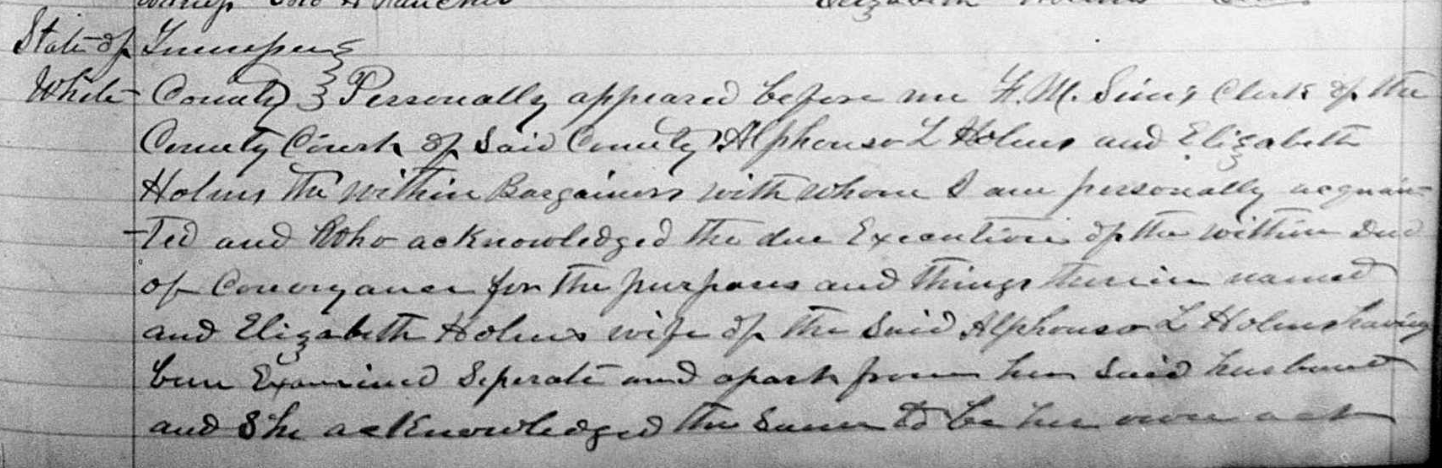 Elizabeth Holms
State of Tennessee
White County } Personally appeared before me F. M. Sims Clerk of the
County Court of Said County Alphonso L Holms and Elizabeth
Holms the within Bargainers with whom I am personally acquain-
-ted and Who acknowledged the due Execution of the within Deed
of Conveyance for the purposes and things therein named
and Elizabeth Holms wife of the Said Alphonso L Holms having
been Examined Seperate and apart from her Said husband
and She acknowledged the Same to be her own act